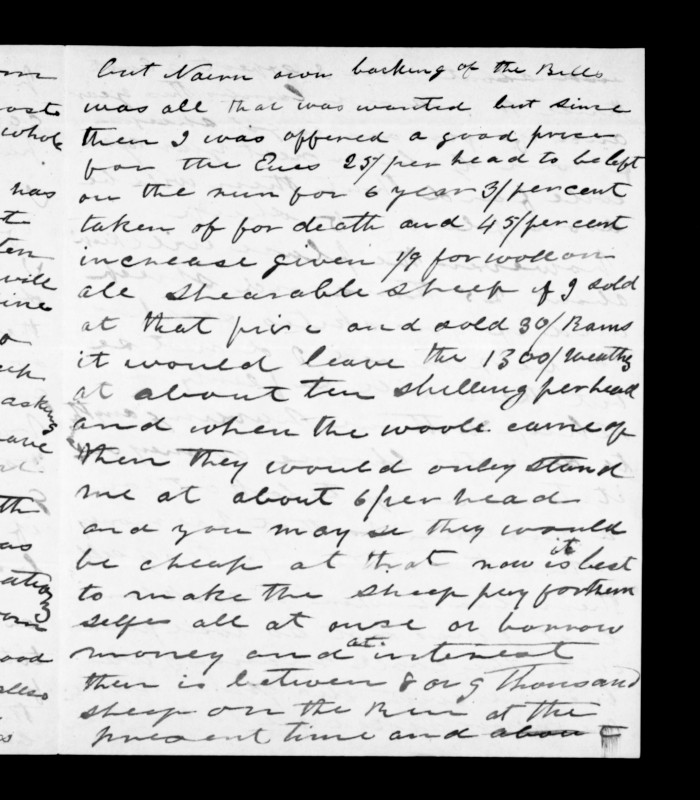 but Nairn own backing of the Bills
was all that was wanted but since
then I was offered a good price
for the Ewes 25/ per head to be left
on the run for 6 year 3/ per cent
taken of for death and 45/ per cent
increase given 1/9 for wool on
all shearable sheep if I sold
at that price and sold 30/ Rams
it would leave the 1300/ Weathers
at about ten shelling per head
and when the woole came of
then they would only stand
me at about 6/ per head
and you may se they would
be cheap at that now is it best
to make the sheep pay for them
selfes all at onse or borrow
money and at interest
their is between 8 or 9 Thousand
sheep on the Run at the
present time and about
om
has
will
asking
have
th
as